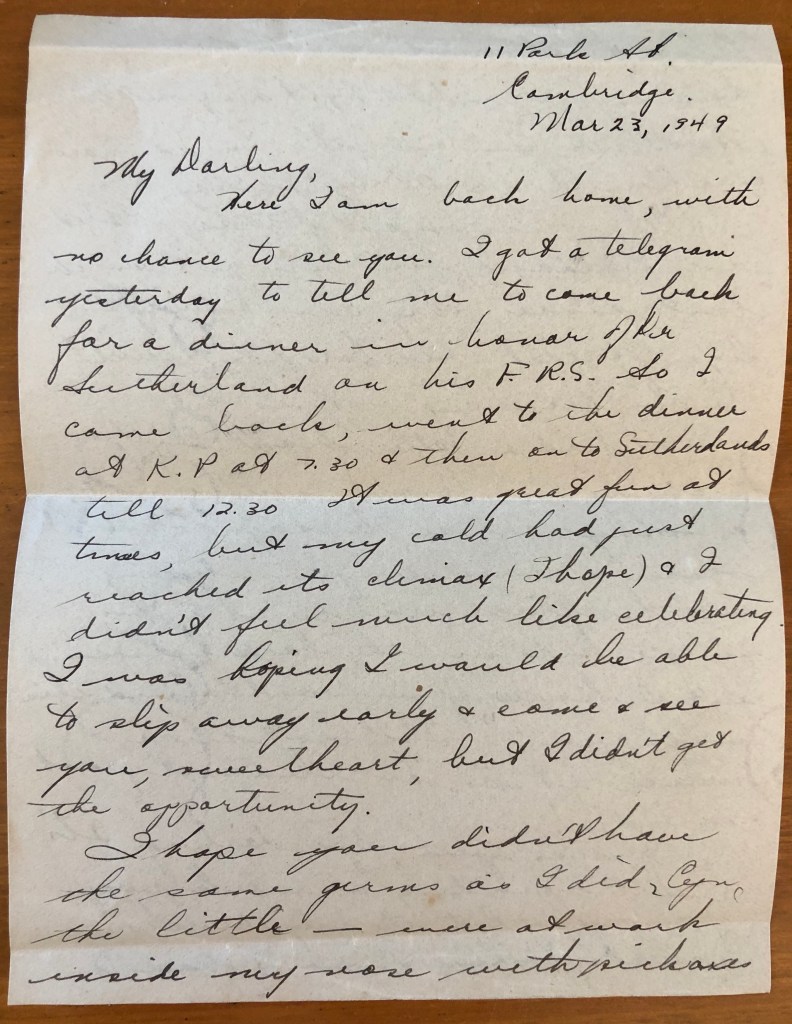 11 Park St.
Cambridge.
Mar 23, 1949
My Darling,
Here I am back home, with
no chance to see you. I got a telegram
yesterday to tell me to come back
for a dinner in honor of
Sutherland on his F.R.S. So I
came back, went to the dinner
at K.P at 7.30 & then on to Sutherlands
till 12.30 It was great fun at
times, but my cold had just
reached its climax (I hope) & I
didn't feel much like celebrating.
I was hoping I would be able
to slip away early & come & see
you, sweetheart, but I didn't get
the opportunity.
I hope you didn't have
the same germs as I did, Cyn,
the little — were at work
inside my nose with pickaxes